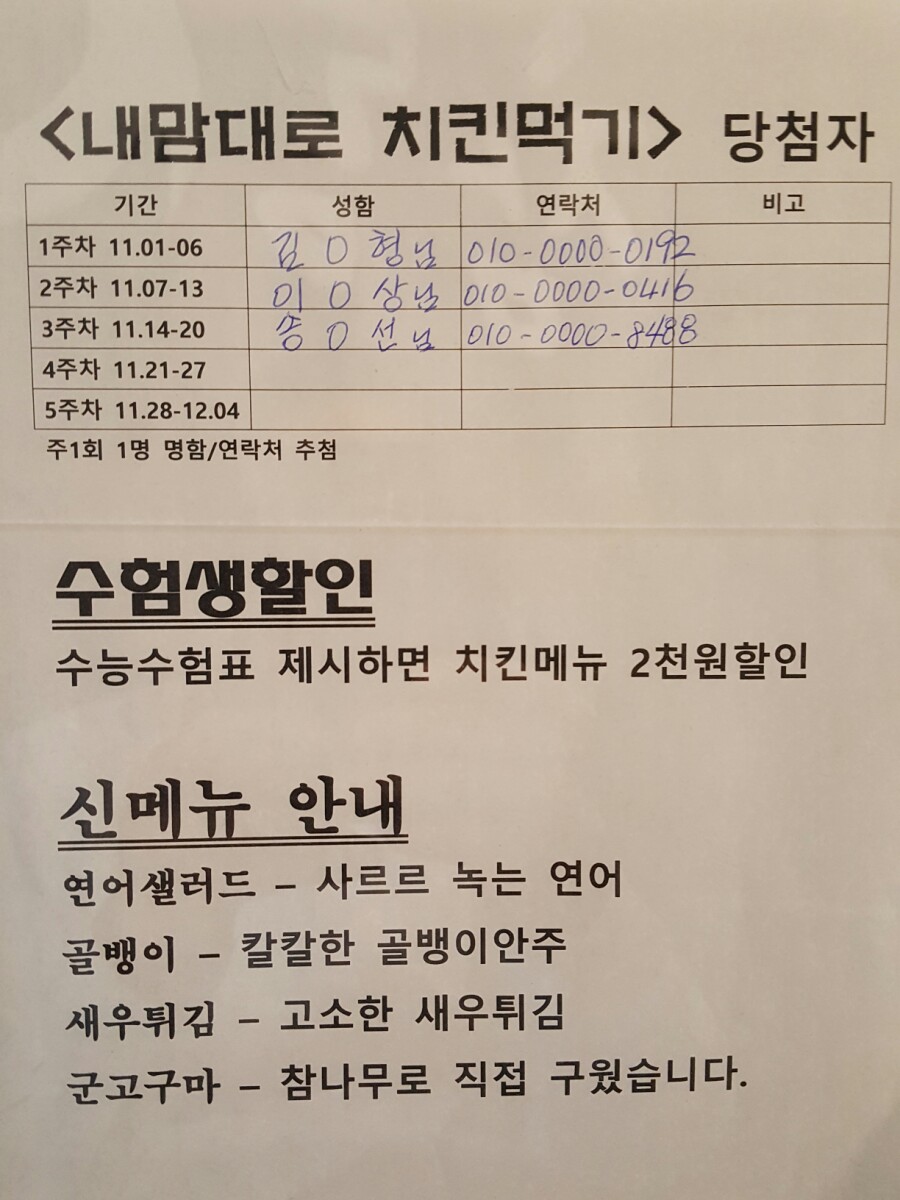 <내맘대로 치킨먹기> 당첨자
기간 성함 연락처 비고
1주차 11.01-06 김 O 형님 010-0000-0192
2주차 11.07-13 이 O 상님 010-0000-0416
3주차 11.14-20 송 O 선님 010-0000-8488
4주차 11.21-27
5주차 11.28-12.04
주1회 1명 명함/연락처 추첨
수험생할인
수능수험표 제시하면 치킨메뉴 2천원할인
신메뉴 안내
연어샐러드 – 사르르 녹는 연어
골뱅이 – 칼칼한 골뱅이안주
새우튀김 – 고소한 새우튀김
군고구마 – 참나무로 직접 구웠습니다.